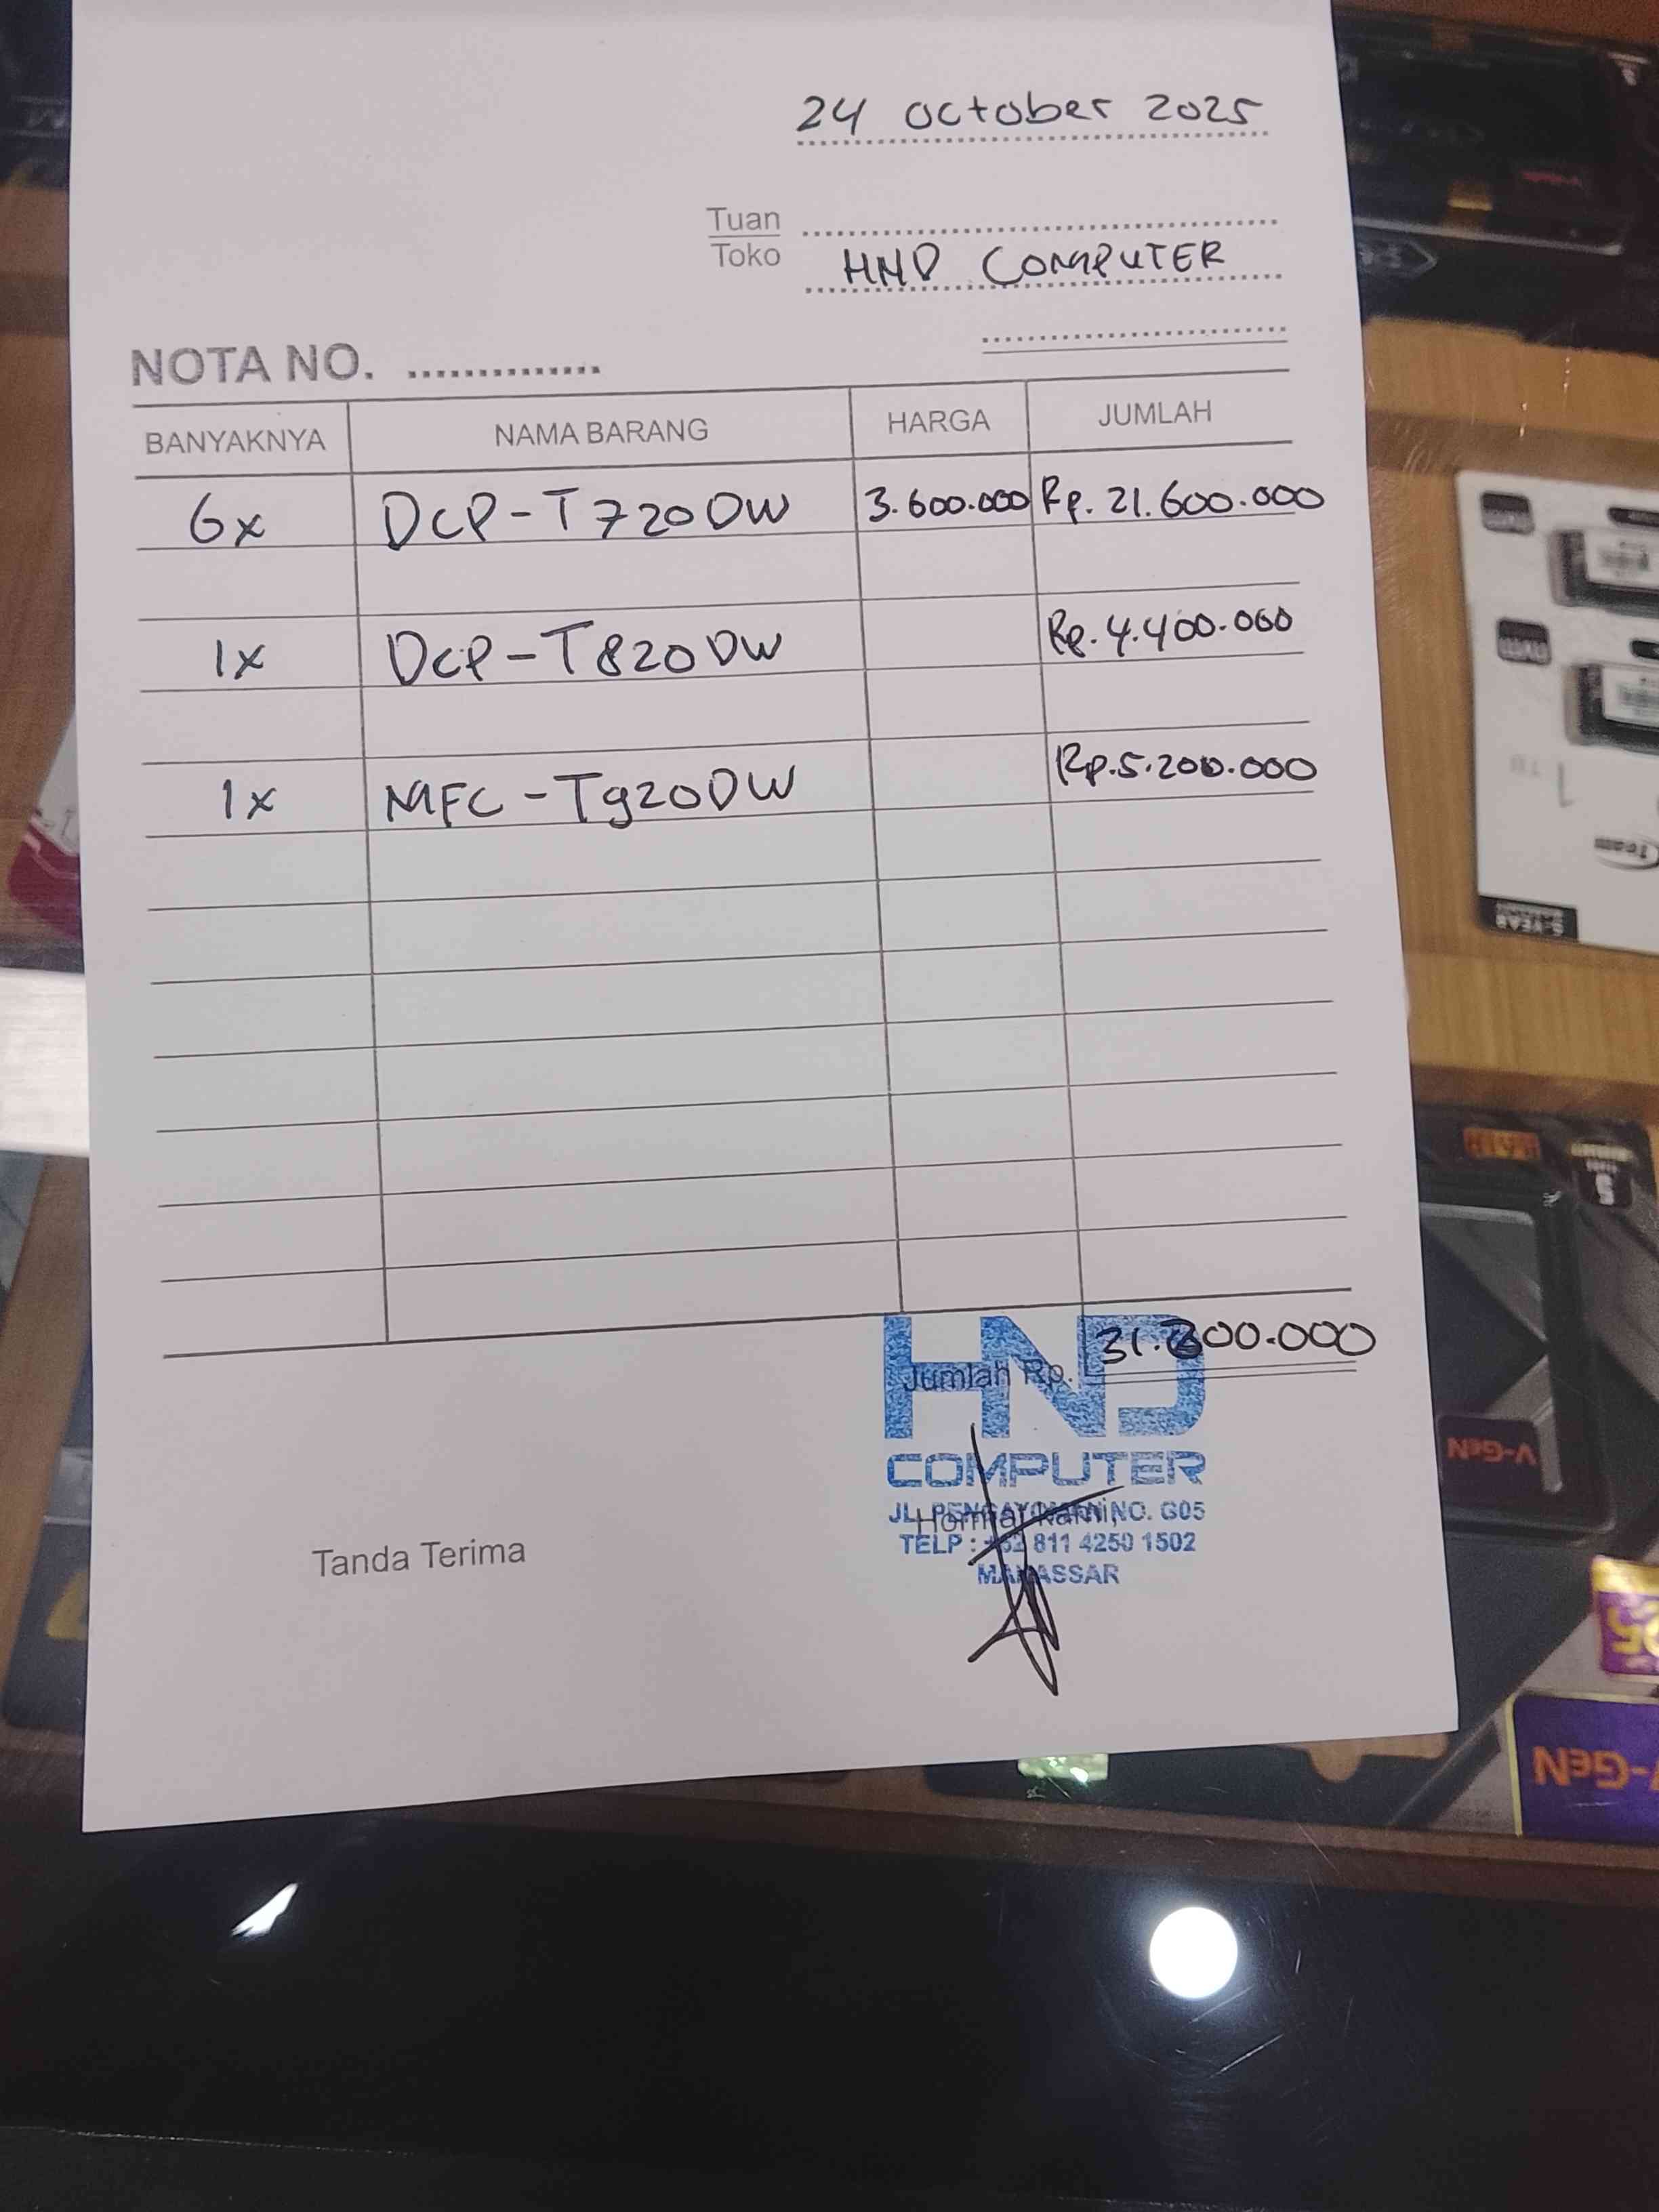 24 october 2025
Tuan
Toko HND COMPUTER
NOTA NO. ...............
BANYAKNYA NAMA BARANG HARGA JUMLAH
6x DCP-T720DW 3.600.000 Rp. 21.600.000
1x DCP-T820DW Rp. 4.400.000
1x MFC-T920DW Rp. 5.200.000
Jumlah Rp. 31.200.000
HND
COMPUTER
JL. PENGAYOMAN NO. G05
Hormat kami,
TELP : +62 811 4250 1502
MAKASSAR
Tanda Terima
Team
1 TB
5-YEAR
V-GeN
V-GeN